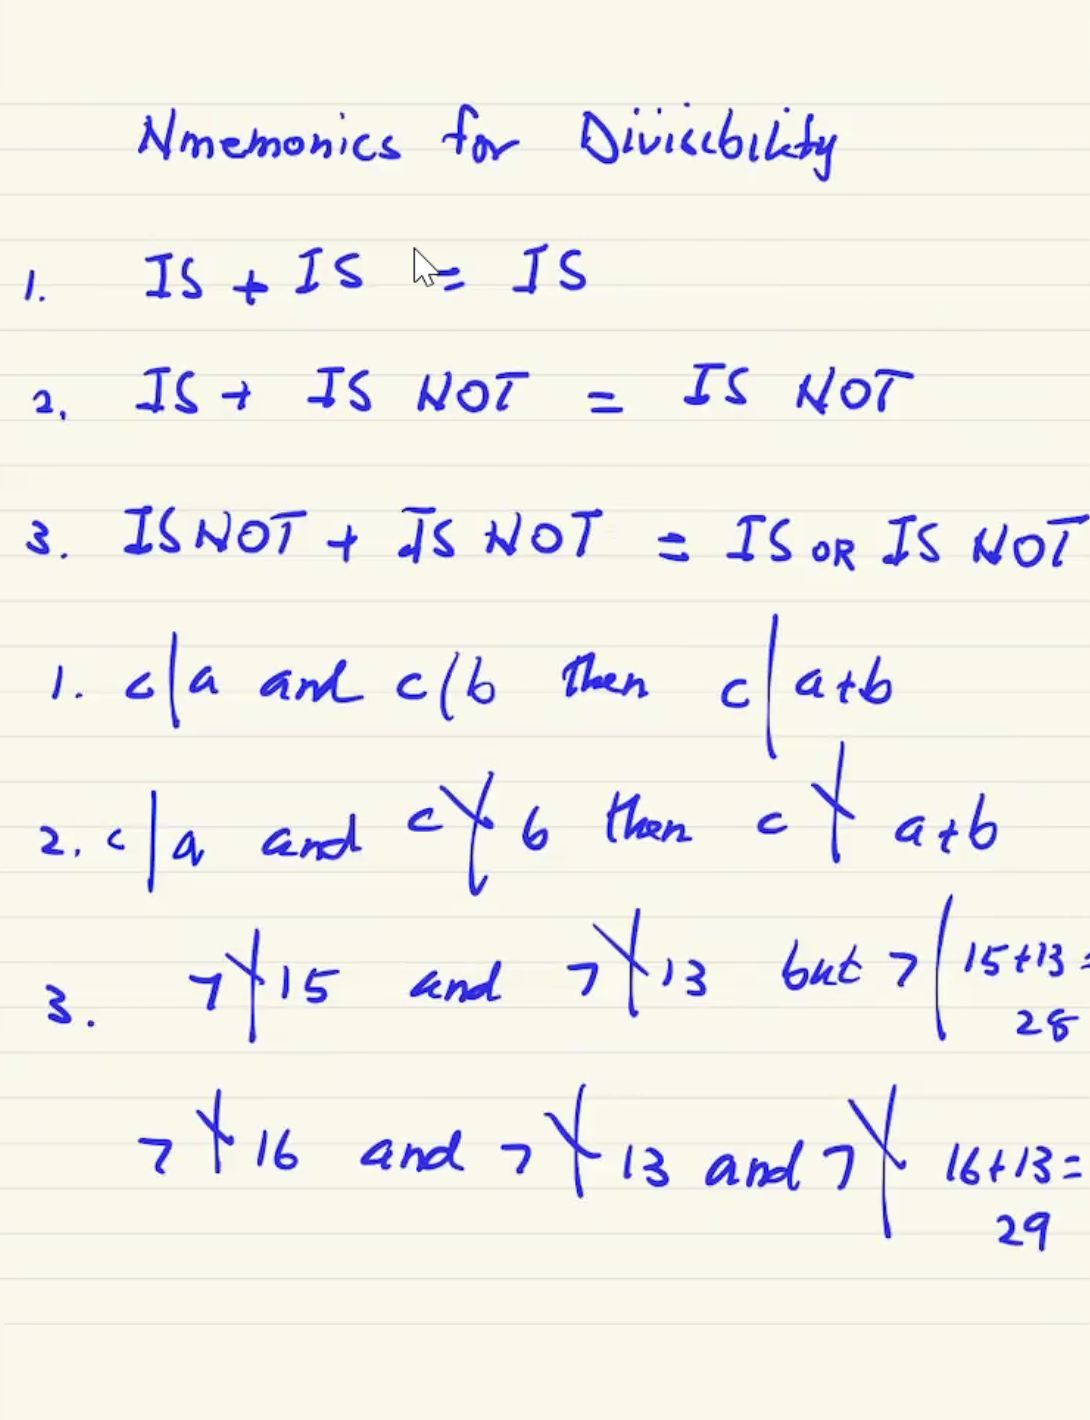 Nmemonics for Divisibility
1. IS + IS = IS
2. IS + IS NOT = IS NOT
3. IS NOT + IS NOT = IS OR IS NOT
1. c|a and c|b then c|a+b
2. c|a and c∤b then c∤a+b
3. 7∤15 and 7∤13 but 7|15+13=
28
7∤16 and 7∤13 and 7∤16+13=
29